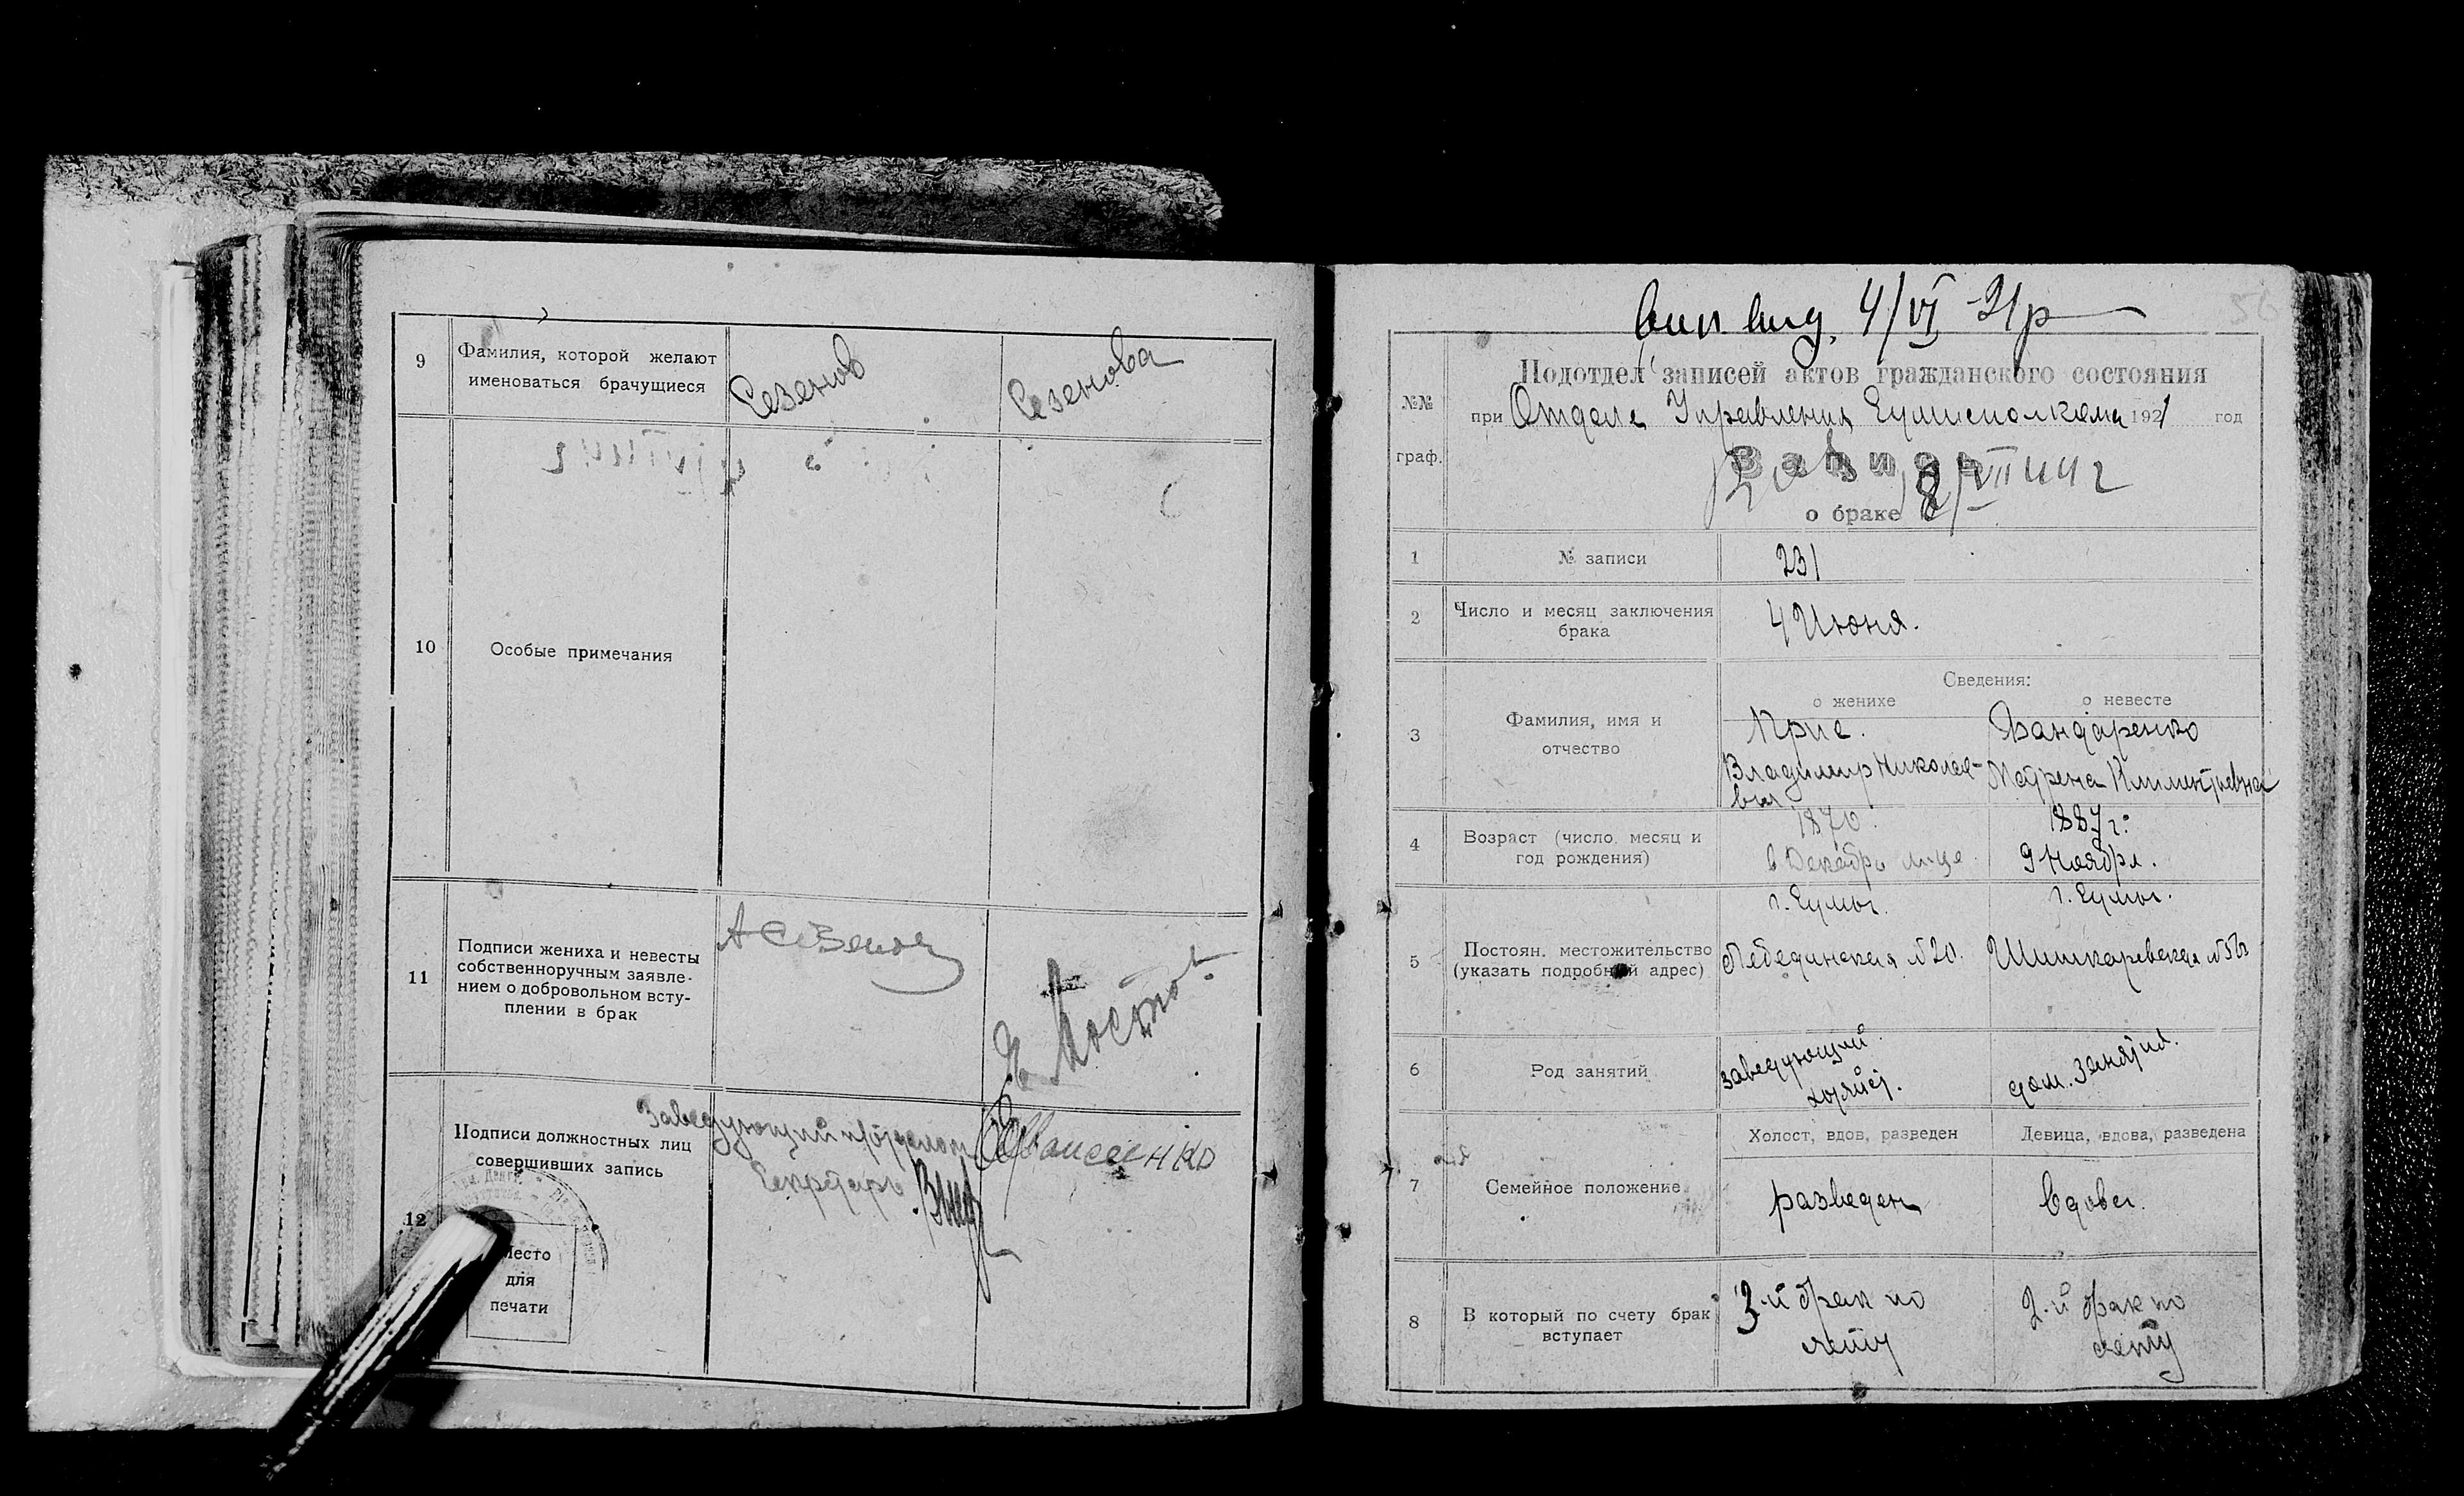 9
Фамилия, которой желают
именоваться брачущиеся
Сезенов
Сезенова
10
Особые примечания
11
Подписи жениха и невесты
собственноручным заявле-
нием о добровольном всту-
плении в брак
АСезенов
Подписи должностных лиц
совершивших запись
Заведующий
Секретарь
12
Место
для
печати
4/VI 21р
56
Подотдел записей актов гражданского состояния
№№
граф.
при Отделе Управления 1921 год
Запись
о браке
8/VII 44 г
1
№ записи
231
2
Число и месяц заключения
брака
4 Июня.
Сведения:
о женихе
о невесте
3
Фамилия, имя и
отчество
Владимир Николае-
вич
Бандаренко
Матрена Климентьевна
4
Возраст (число, месяц и
год рождения)
1870.
в Декабре м-це.
1887 г.
9 Ноября.
5
Постоян. местожительство
(указать подробный адрес)
г. Сумы.
Лебединская №20.
г. Сумы.
Шишкаревская
6
Род занятий
заведующий
хозяйст.
дом. занятия.
7
Семейное положение
Холост, вдов, разведен
Девица, вдова, разведена
разведен
вдова.
8
В который по счету брак
вступает
3-й брак по
счету
2-й брак по
счету